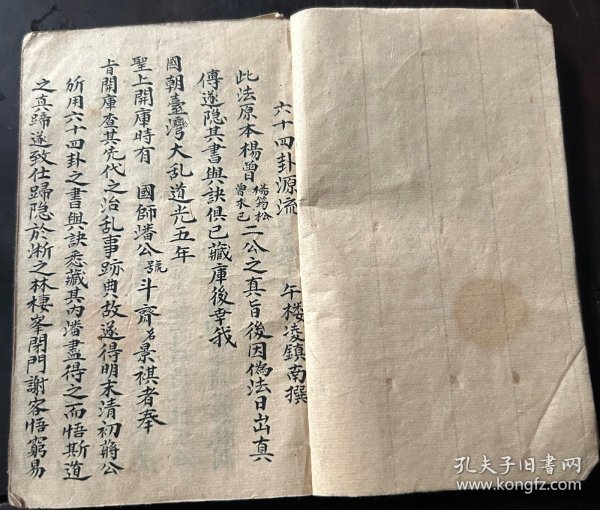 六十四卦源流　午楼凌鎮南撰
此法原本楊曾楊筠松曾求已二公之真旨後因偽法日出真
傳遂隐其書與訣俱已藏庫後幸我
國朝臺灣大乱道光五年
聖上開庫時有　國師潘公號斗齋名景祺者奉
旨開庫查其先代之治乱事跡典故遂得明末清初蔣公
所用六十四卦之書與訣悉藏其内潘盡得之而悟斯道
之真蹄遂致仕歸隐於淅之林棲峯閉門謝客悟窮易
孔夫子旧书网
www.kongfz.com